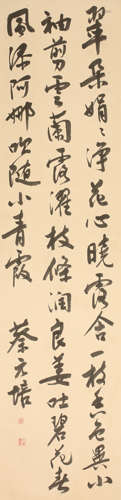 翠朵娟娟净花心晓露含一枝春色异小
袖剪云蘭露濯枝條润良姜吐碧花春
風添阿娜吹随小青霞
蔡元培